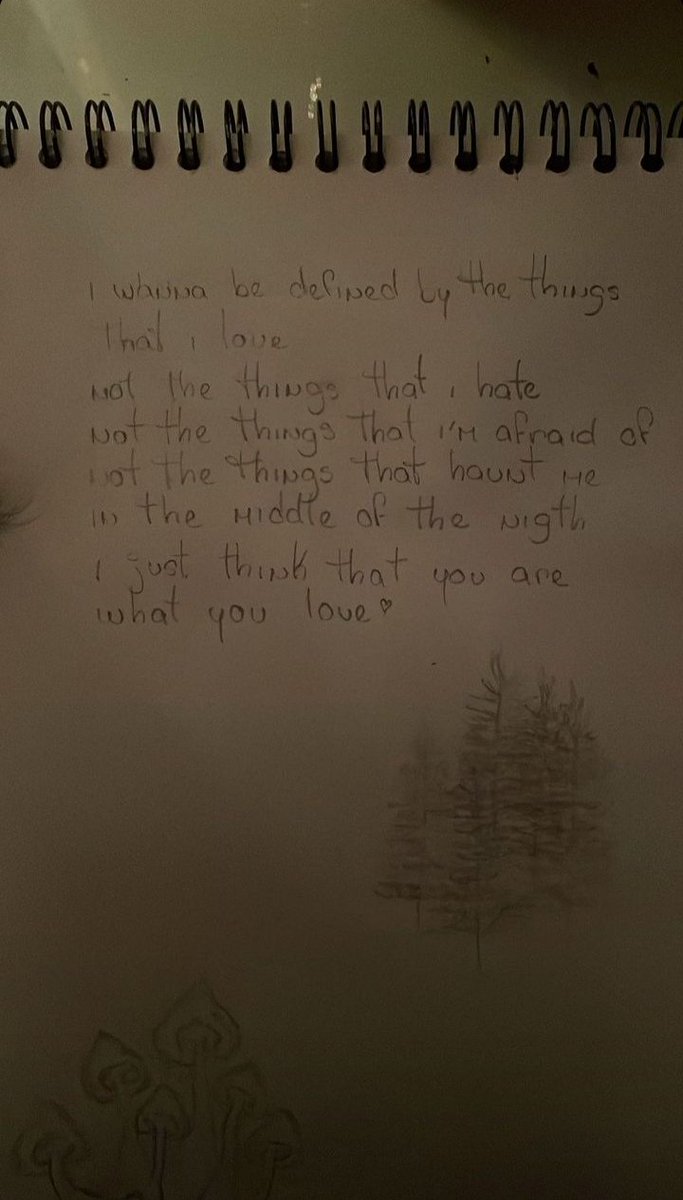 I wanna be defined by the things
that i love
not the things that i hate
not the things that i'm afraid of
not the things that haunt me
in the middle of the nigth
I just think that you are
what you love♡